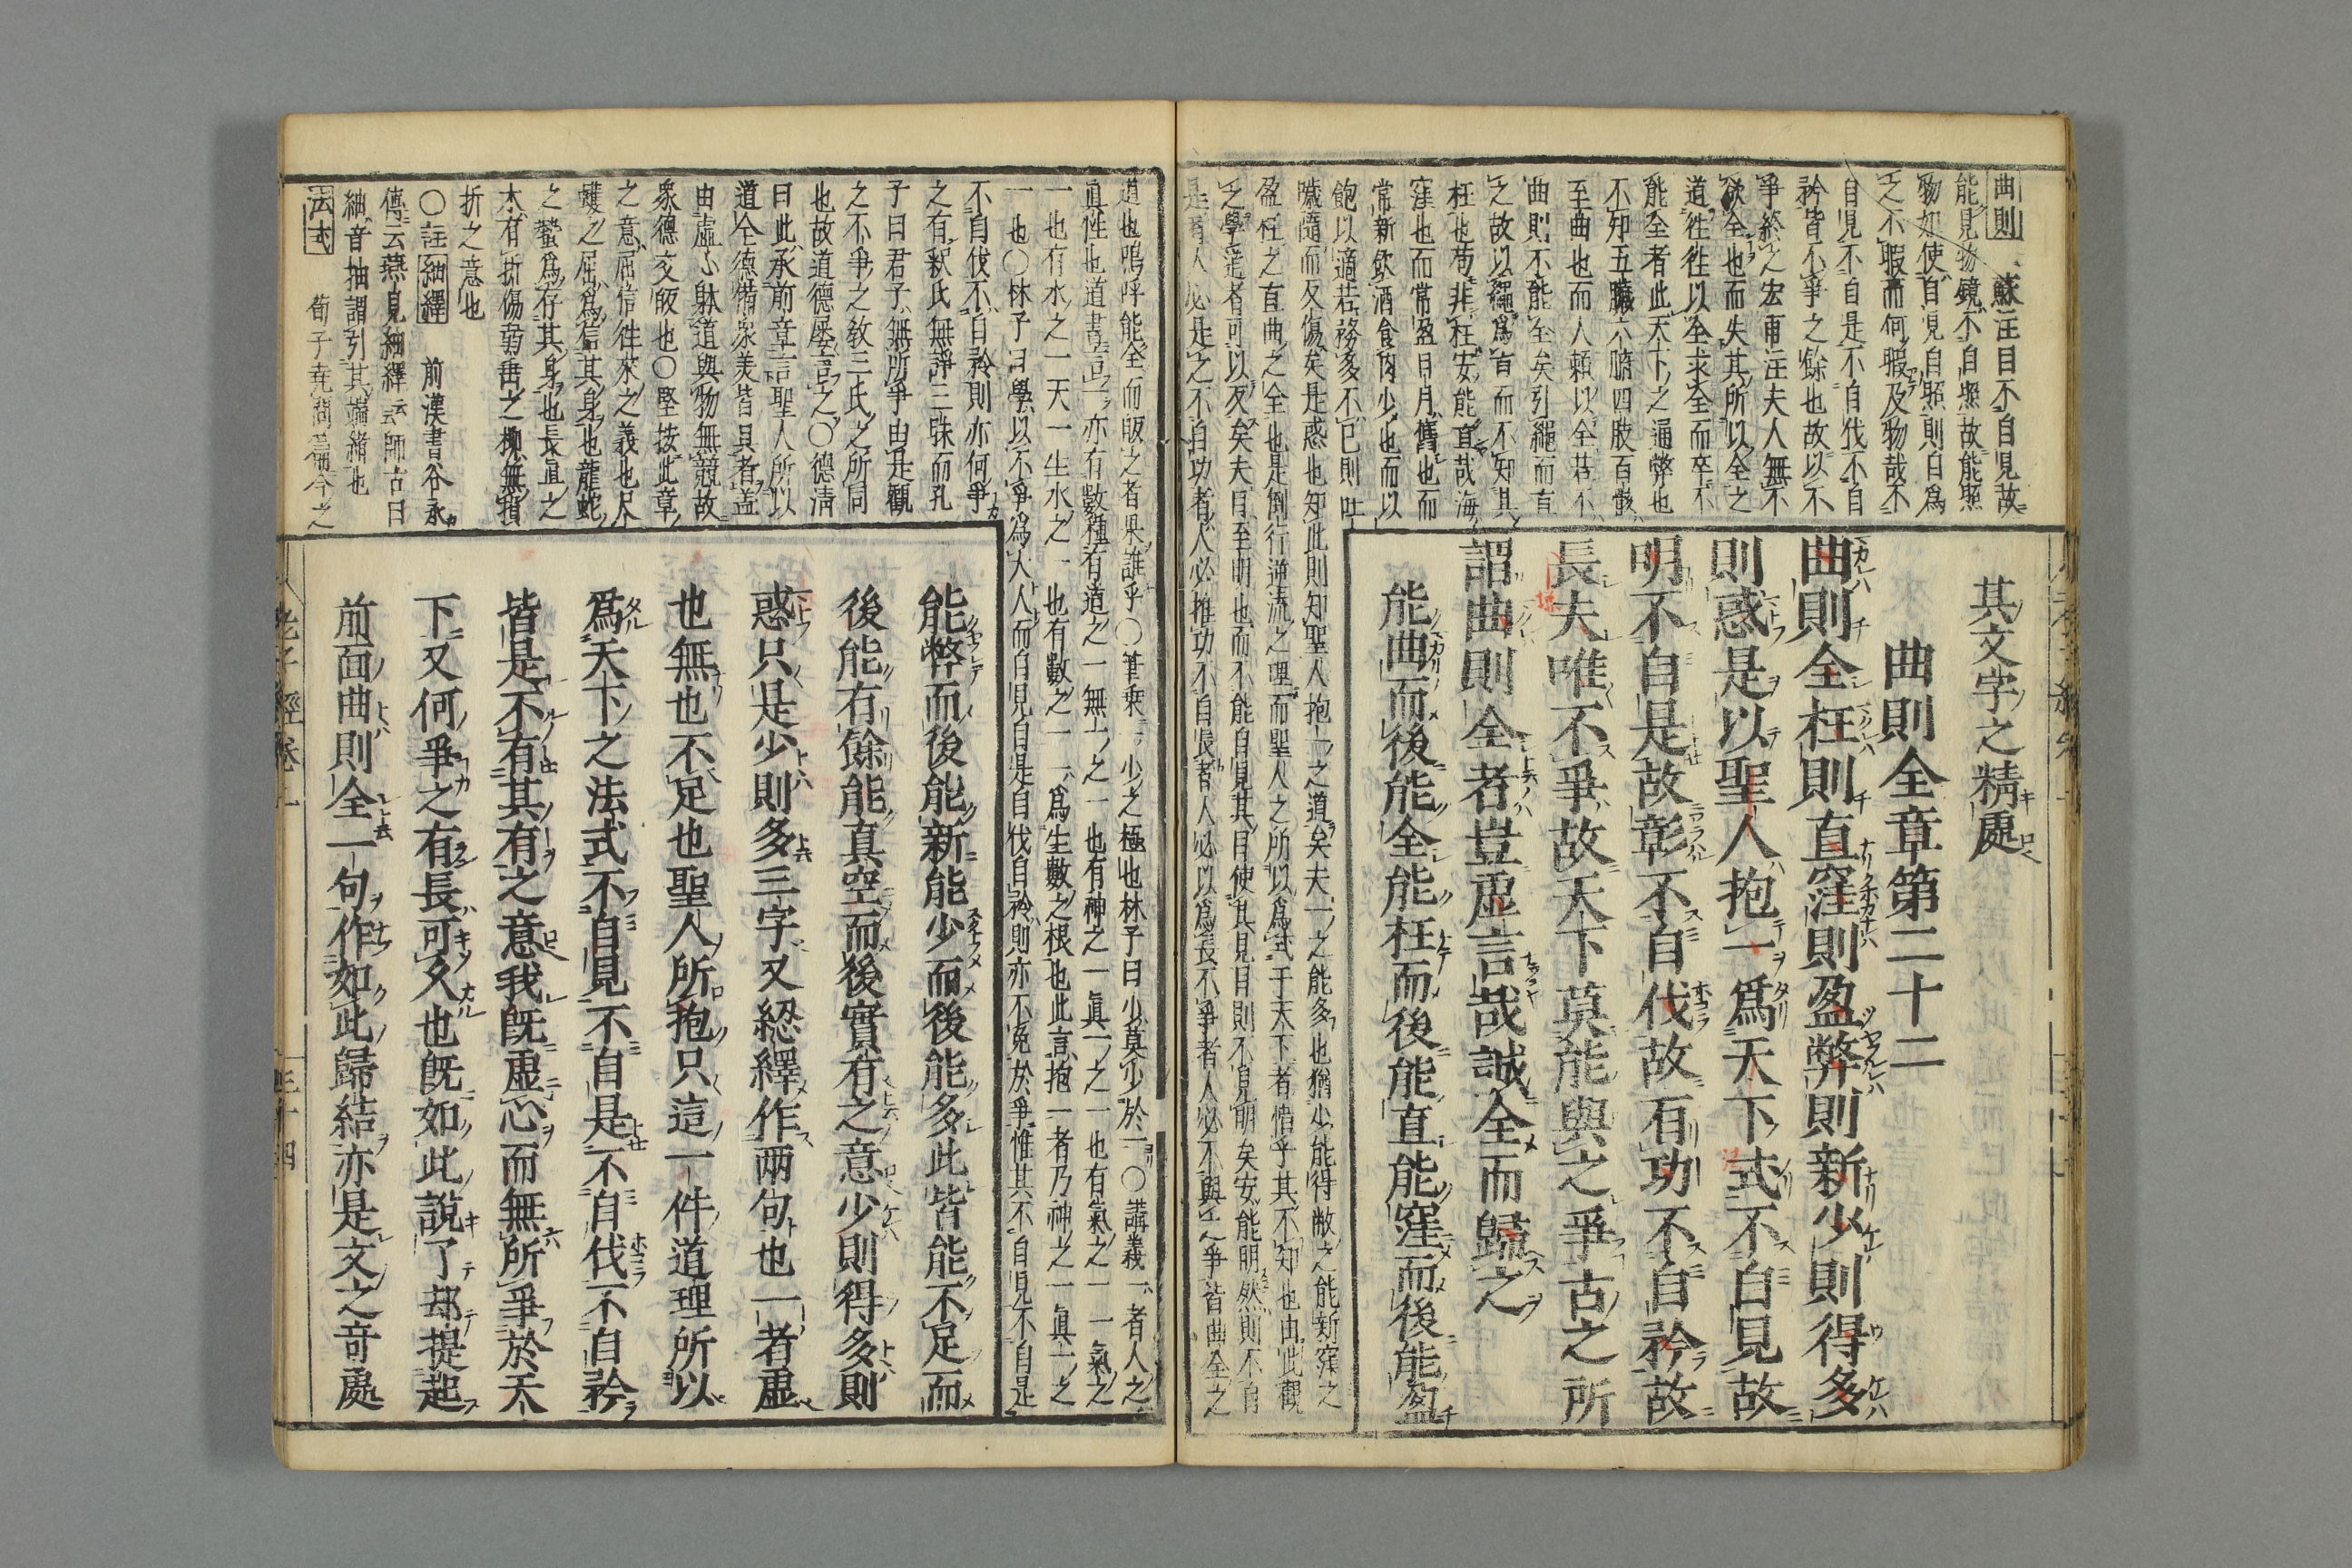 其文字之精處
曲則全章第二十二
曲則全枉則直窪則盈弊則新少則得多
則惑是以聖人抱一爲天下式不自見故
明不自是故彰不自伐故有功不自矜故
長夫唯不爭故天下莫能與之爭古之所
謂曲則全者豈虛言哉誠全而歸之
能曲而後能全能枉而後能直能窪而後能盈
曲則 蘇注目不自見故
能見物鏡不自照故能照
物如使自見自照則自爲
之不暇而何暇及物哉不
自見不自是不自伐不自
矜皆不爭之餘也故以不
爭終之宏甫注夫人無不
欲全也而失其所以全之
道徃徃以全求全而卒不
能全者此天下之通弊也
不知五臟六腑四肢百骸
至曲也而人頼以全若不
曲則不能全矣引繩而直
之故以繩爲直而不知其
枉也苟非枉安能直哉海
窪也而常盈日月舊也而
常新飲酒食肉少也而以
飽以適若務多不已則吐
噦隨而反傷矣是惑也知此則知聖人抱一之道矣夫一之能多也猶少能得敝之能新窪之
盈枉之直曲之全也是倒行逆流之理而聖人之所以爲式于天下者惜乎其不知也由此觀
之學道者可以反矣夫目至明也而不能自見其目使其見目則不見明矣安能明然則不自
是者人必是之不自功者人必推功不自長者人必以爲長不爭者人必不與之爭皆曲全之
道也嗚呼能全而歸之者果誰乎○筆乗一少之極也林子曰少莫少於一○講義一者人之
眞性也道書言一亦有數種有道之一無一之一也有神之一眞一之一也有氣之一一氣之
一也有水之一天一生水之一也有數之一一爲生數之根也此言抱一者乃神之一眞一之
一也○林子曰學以不爭爲大人而自見自是自伐自矜則亦不免於爭惟其不自見不自是
不自伐不自矜則亦何爭
之有釈氏無諍三昧而孔
子曰君子無所爭由是觀
之不爭之敎三氏之所同
也故道德屡言之○德淸
曰此承前章言聖人所以
道全德備衆美皆具者盖
由虛心躰道與物無競故
衆德交皈也○堅按此章
之意屈信徃來之義也尺
蠖之屈爲信其身也龍蛇
之蟄爲存其身也長直之
木有折傷弱垂之柳無摧
折之意也
○註紬繹 前漢書谷永
傳云燕見紬繹云師古曰
紬音抽謂引其端緒也
法式 荀子堯問篇今之
能弊而後能新能少而後能多此皆能不足而
後能有餘能真空而後實有之意少則得多則
惑只是少則多三字又綛繹作兩句也一者虛
也無也不足也聖人所抱只這一件道理所以
爲天下之法式不自見不自是不自伐不自矜
皆是不有其有之意我旣虛心而無所爭於天
下又何爭之有長可久也旣如此說了却提起
前面曲則全一句作如此歸結亦是文之竒處
老子經卷上 三十四